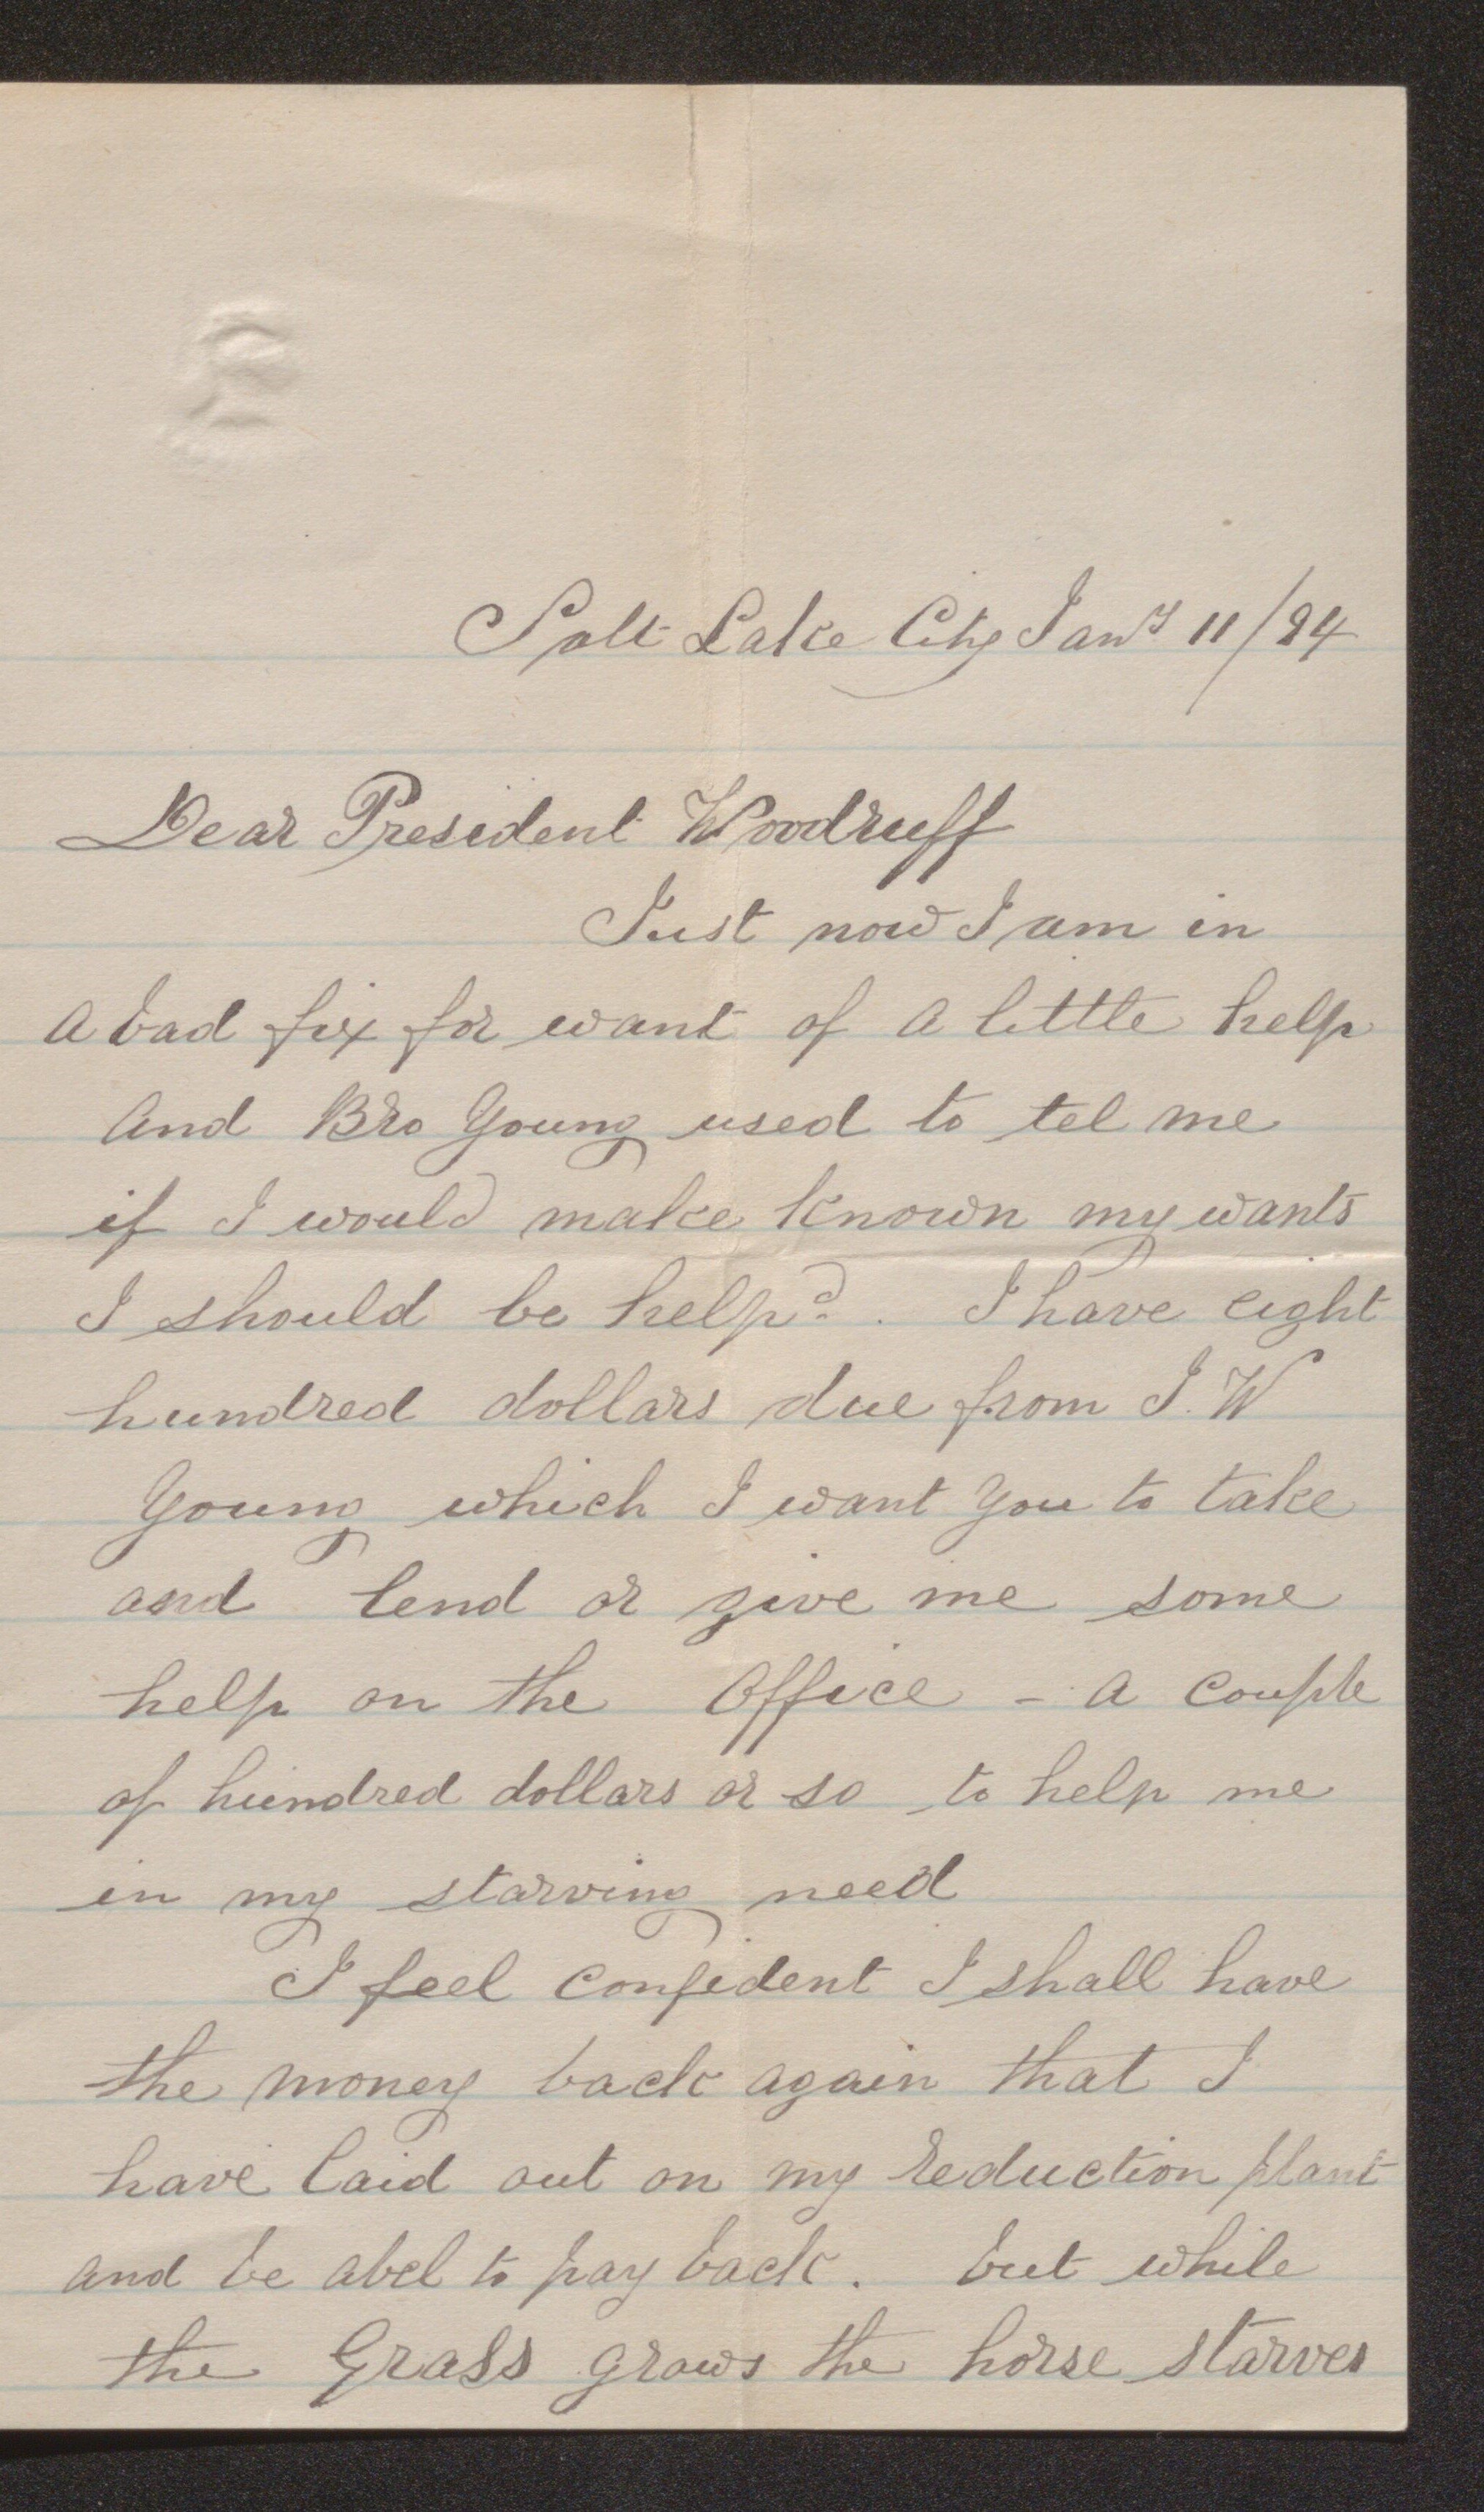 Salt Lake City Jany 11/94
Dear President Woodruff
Just now I am in
a bad fix for want of a little help
and Bro Young used to tel me
if I would make known my wants
I should be helpd. I have eight
hundred dollars due from J. W
Young which I want you to take
and lend or give me some
help on the Office - a couple
of hundred dollars or so to help me
in my starving need
I feel confident I shall have
the money back again that I
have laid out on my reduction plant
and be abel to pay back. but while
the Grass grows the horse starves